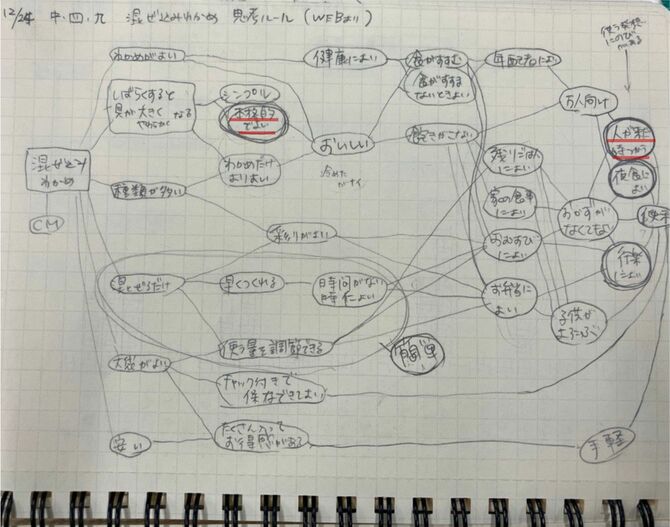 12/24 中.四.九 混ぜ込みわかめ 思考ルール (WEBより)
使う発想
にのび
がある
わかめがよい
健康によい
食がすすむ
食がすすま
ないときよい
年配者によい
万人向け
しばらくすると
具が大きく なる
やわらかく
シンプル
本格的
でよい
わかめだけ
よりよい
おいしい
冷めた
飽きがこない
人が来た
時つかう
夜食に
よい
混ぜ込み
わかめ
CM
種類が多い
残りごはん
によい
家の食事
によい
おかずが
なくてよい
彩りがよい
おむすび
によい
行楽
によい
混ぜるだけ
早くつくれる
時間がない
時によい
お弁当に
よい
子供が
よろこぶ
使う量を調節できる
簡単
大袋がよい
チャック付きで
保存できてよい
安い
たくさん入って
お得感がある
手軽